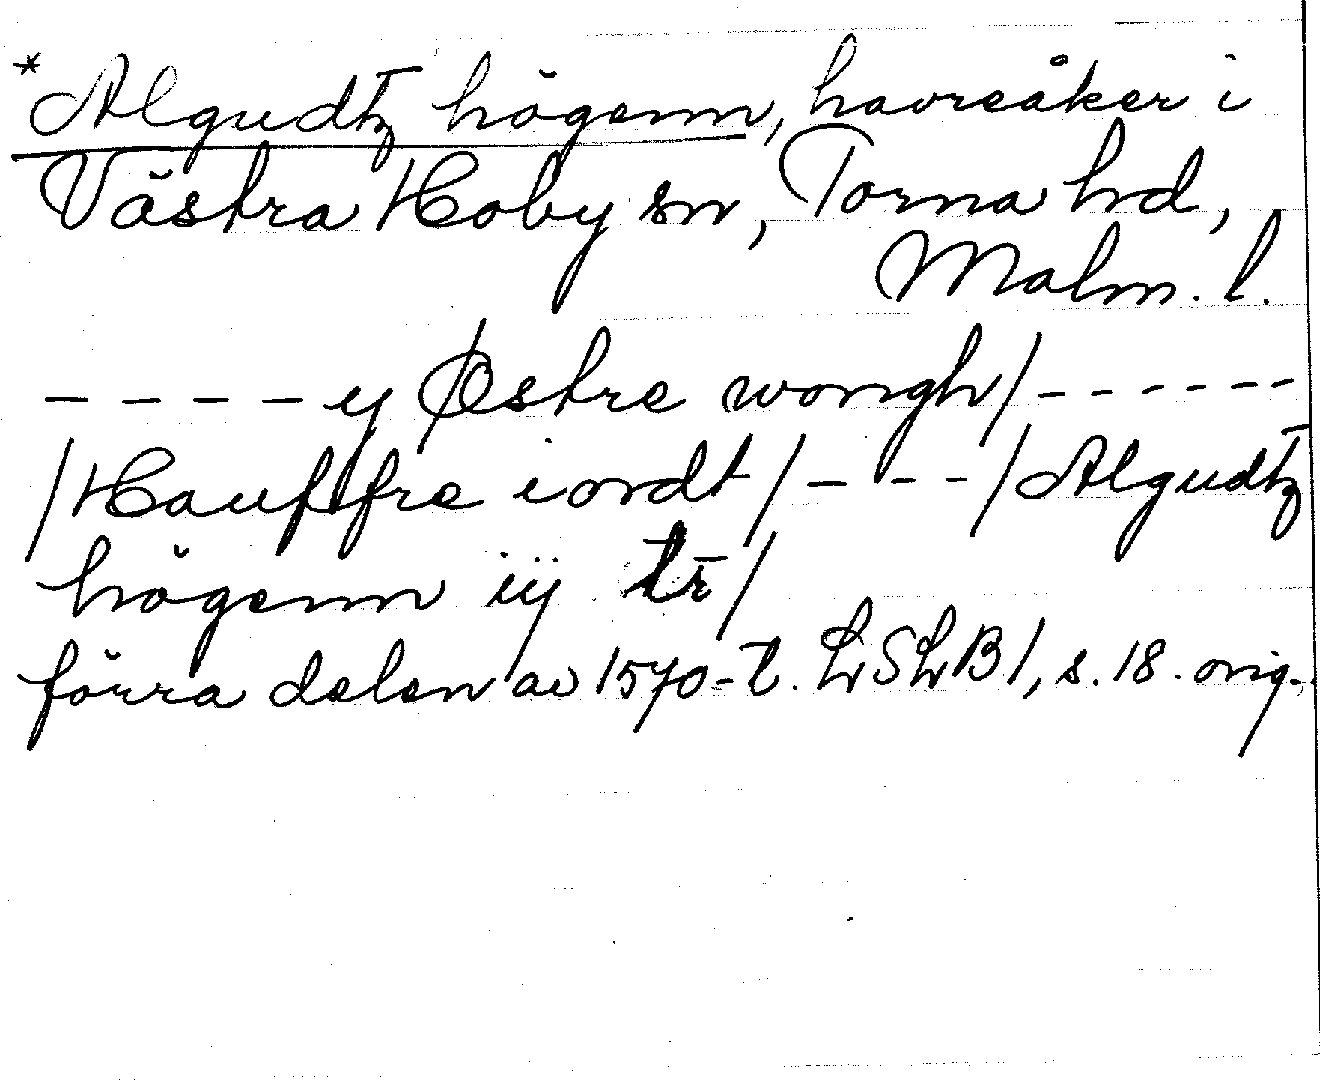 *Algudtz högenn, havreåker i
Västra Hoby sn, Torna hd,
Malm. l.
- - - - y Østre wongh/ - - - - - -
/Hauffre iordt/ - - - /Algudtz
högenn iij
förra delen av 1570-t. LSLB1, s. 18. orig.